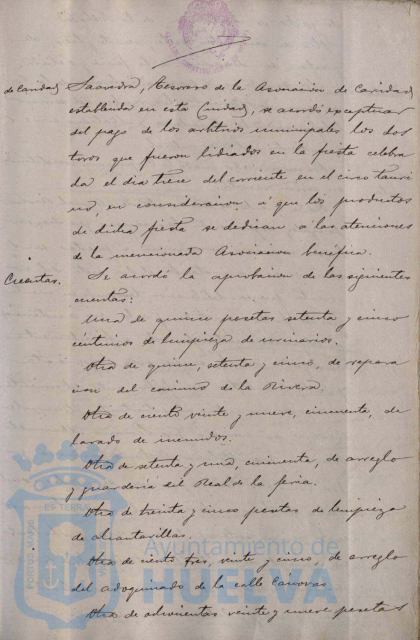 de Caridad
Saavedra, tesorero de la Asociacion de Caridad
establecida en esta Ciudad, se acordó exceptuar
del pago de los arbitrios municipales los dos
toros que fueron lidiados en la fiesta celebra
da el dia trece del corriente en el circo tauri
no, en consideracion á que los productos
de dicha fiesta se dedican á las atenciones
de la mencionada Asociacion benéfica.
Cuentas.
Se acordó la aprobacion de las siguientes
cuentas:
Una de quince pesetas setenta y cinco
céntimos de limpieza de urinarios.
Otra de quince, setenta y cinco, de repara
cion del camino de la Rivera.
Otra de ciento veinte y nueve, cincuenta, de
labrado de menudos.
Otra de setenta y una, cincuenta, de arreglo
y guardería del Real de la feria.
Otra de treinta y cinco pesetas de limpieza
de alcantarillas.
Otra de ciento tres, veinte y cinco, de arreglo
del adoquinado de la calle Canovas
Otra de doscientas veinte y nueve pesetas
PORTUS MARIS
ET TERRAE
Ayuntamiento de
HUELVA